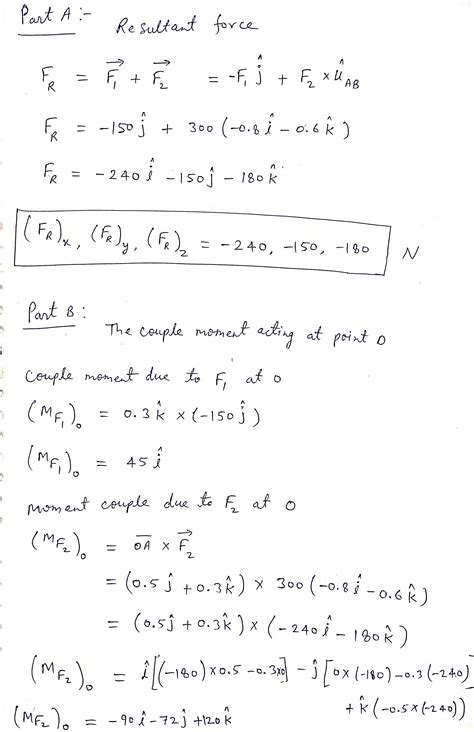 Part A :- Resultant force
F_R = →F₁ + →F₂ = -F₁ ĵ + F₂ × û_AB
F_R = -150 ĵ + 300 (-0.8 î - 0.6 k̂)
F_R = -240 î - 150 ĵ - 180 k̂
(F_R)_x, (F_R)_y, (F_R)_z = -240, -150, -180 N
Part B :
The couple moment acting at point O
couple moment due to F₁ at O
(M_F₁)₀ = 0.3 k̂ × (-150 ĵ)
(M_F₁)₀ = 45 î
moment couple due to F₂ at O
(M_F₂)₀ = O̅A̅ × →F₂
= (0.5 ĵ + 0.3 k̂) × 300 (-0.8 î - 0.6 k̂)
= (0.5 ĵ + 0.3 k̂) × (-240 î - 180 k̂)
(M_F₂)₀ = î[(-180) × 0.5 - 0.3×0] - ĵ [0 × (-180) - 0.3 (-240)]
+ k̂ (-0.5 × (-240))
(M_F₂)₀ = -90 î - 72 ĵ + 120 k̂